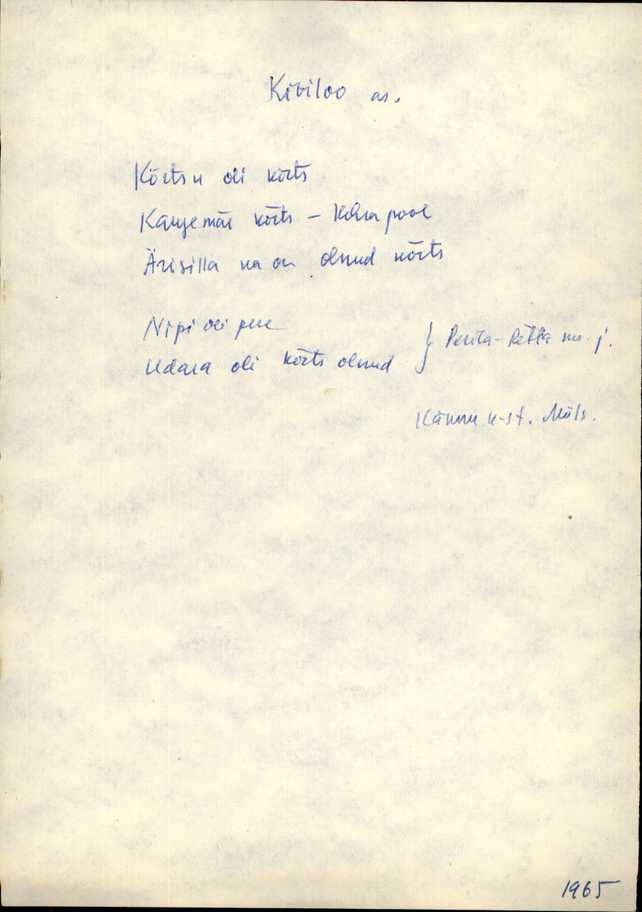 Kiviloo as.
Kõrtsu oli kõrts
Karjemäe kõrts – Kõha pool
Ärisilla ka on olnud kõrts
Nipi oli pere
Udara oli kõrts olnud } Perila-Rätla m. j.
Kämmu k-st.
1965